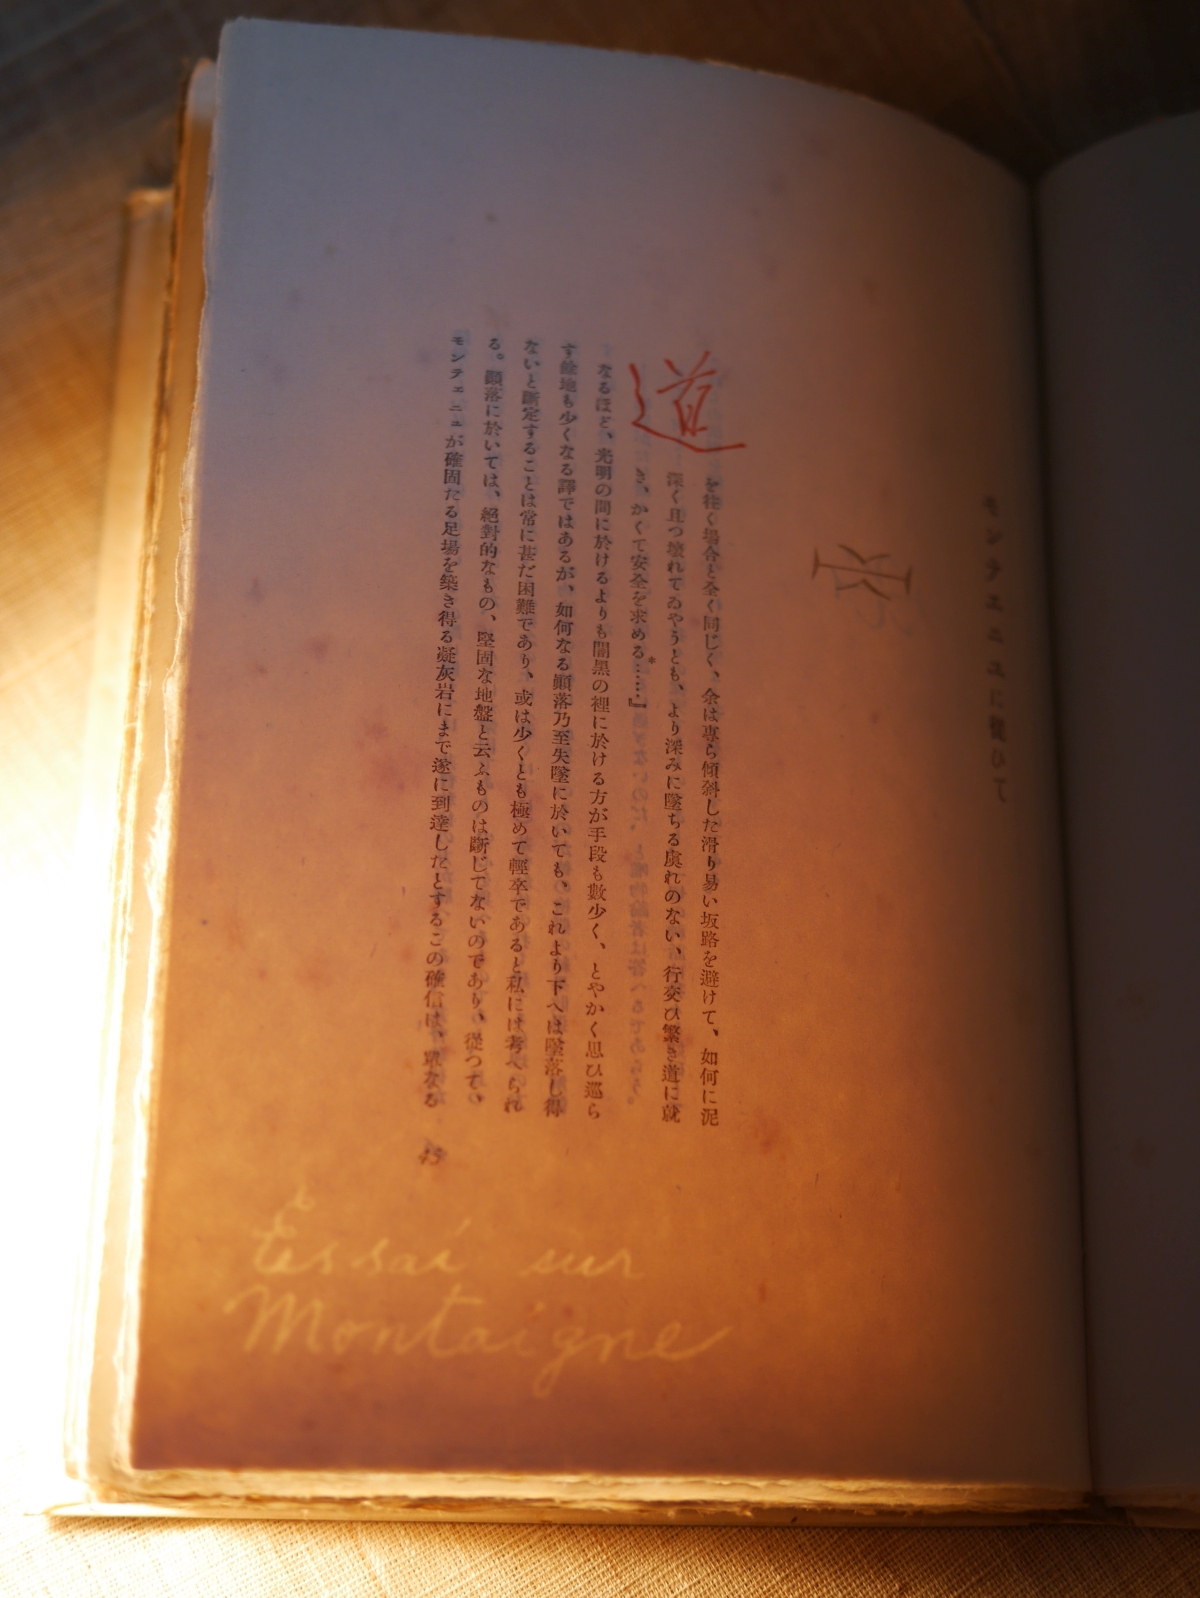 モンテエニユに從ひて
道を往く場合と全く同じく、余は專ら傾斜した滑り易い坂路を避けて、如何に泥
深く且つ壞れてゐやうとも、より深みに墜ちる虞れのない、行交ひ繁き道に就
き、かくて安全を求める……』*
なるほど、光明の間に於けるよりも闇黑の裡に於ける方が手段も數少く、とやかく思ひ巡ら
す餘地も少くなる譯ではあるが、如何なる顚落乃至失墜に於いても、これより下へは墜落し得
ないと斷定することは常に甚だ困難であり、或は少くとも極めて輕卒であると私には考へられ
る。顚落に於いては、絕對的なもの、堅固な地盤と云ふものは斷じてないのであり、從つて、
モンテェニュが確固たる足場を築き得る凝灰岩にまで遂に到達したとするこの確信は、單なる
Essai sur
Montaigne